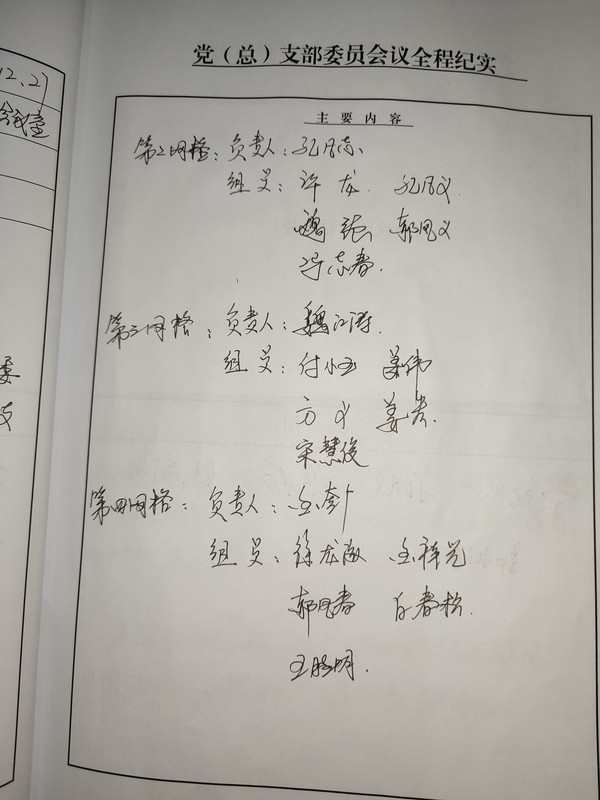 12.27
党（总）支部委员会议全程纪实
主要内容
第二网格：负责人：孔凡东
组员：许龙 孔凡义
魏强 郭凤义
冯志春.
第三网格：负责人：魏江涛.
组员：付小玉 姜伟
方义 姜贵.
宋慧俊
第四网格：负责人：
组员：徐龙海
郭凤春 白春松.
王晓明.